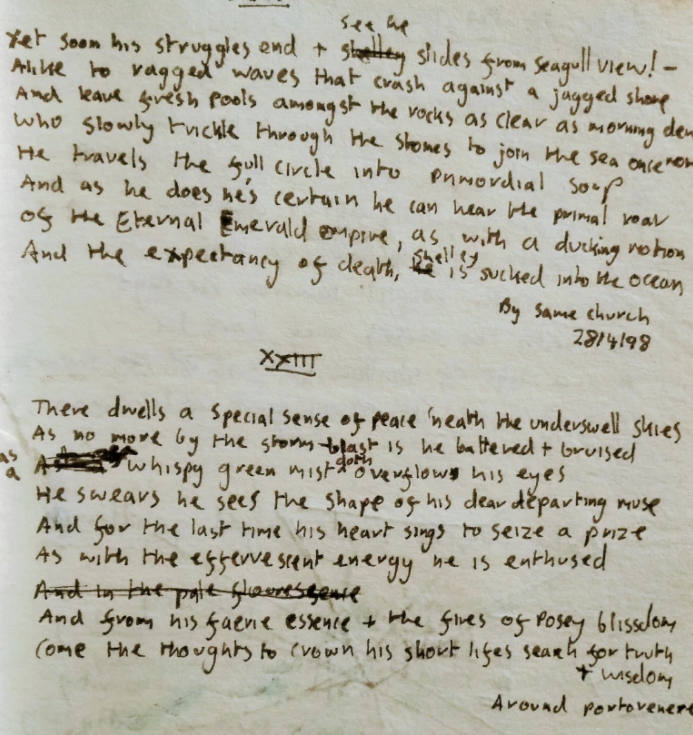 see he
Yet soon his struggles end + shelley slides from seagull view! -
Alike to ragged waves that crash against a jagged shore
And leave fresh pools amongst the rocks as clear as morning dew
Who slowly trickle through the stones to join the sea once mor
He travels the full circle into primordial soup
And as he does he's certain he can hear the primal roar
Of the Eternal Emerald empire, as with a ducking motion
shelley
And the expectancy of death, he is sucked into the ocean
By same church
28/4/98
XXIII
There dwells a special sense of peace 'neath the underswell skies
As no more by the storm blast is he battered + bruised
as a whispy green mist doth overflow his eyes
He swears he sees the shape of his dear departing muse
And for the last time his heart sings to seize a prize
As with the effervescent energy he is enthused
And in the pale flourescence
And from his faerie essence + the fires of Posey blissdom
Come the thoughts to crown his short lifes search for truth
+ wisdom
Around portovenere